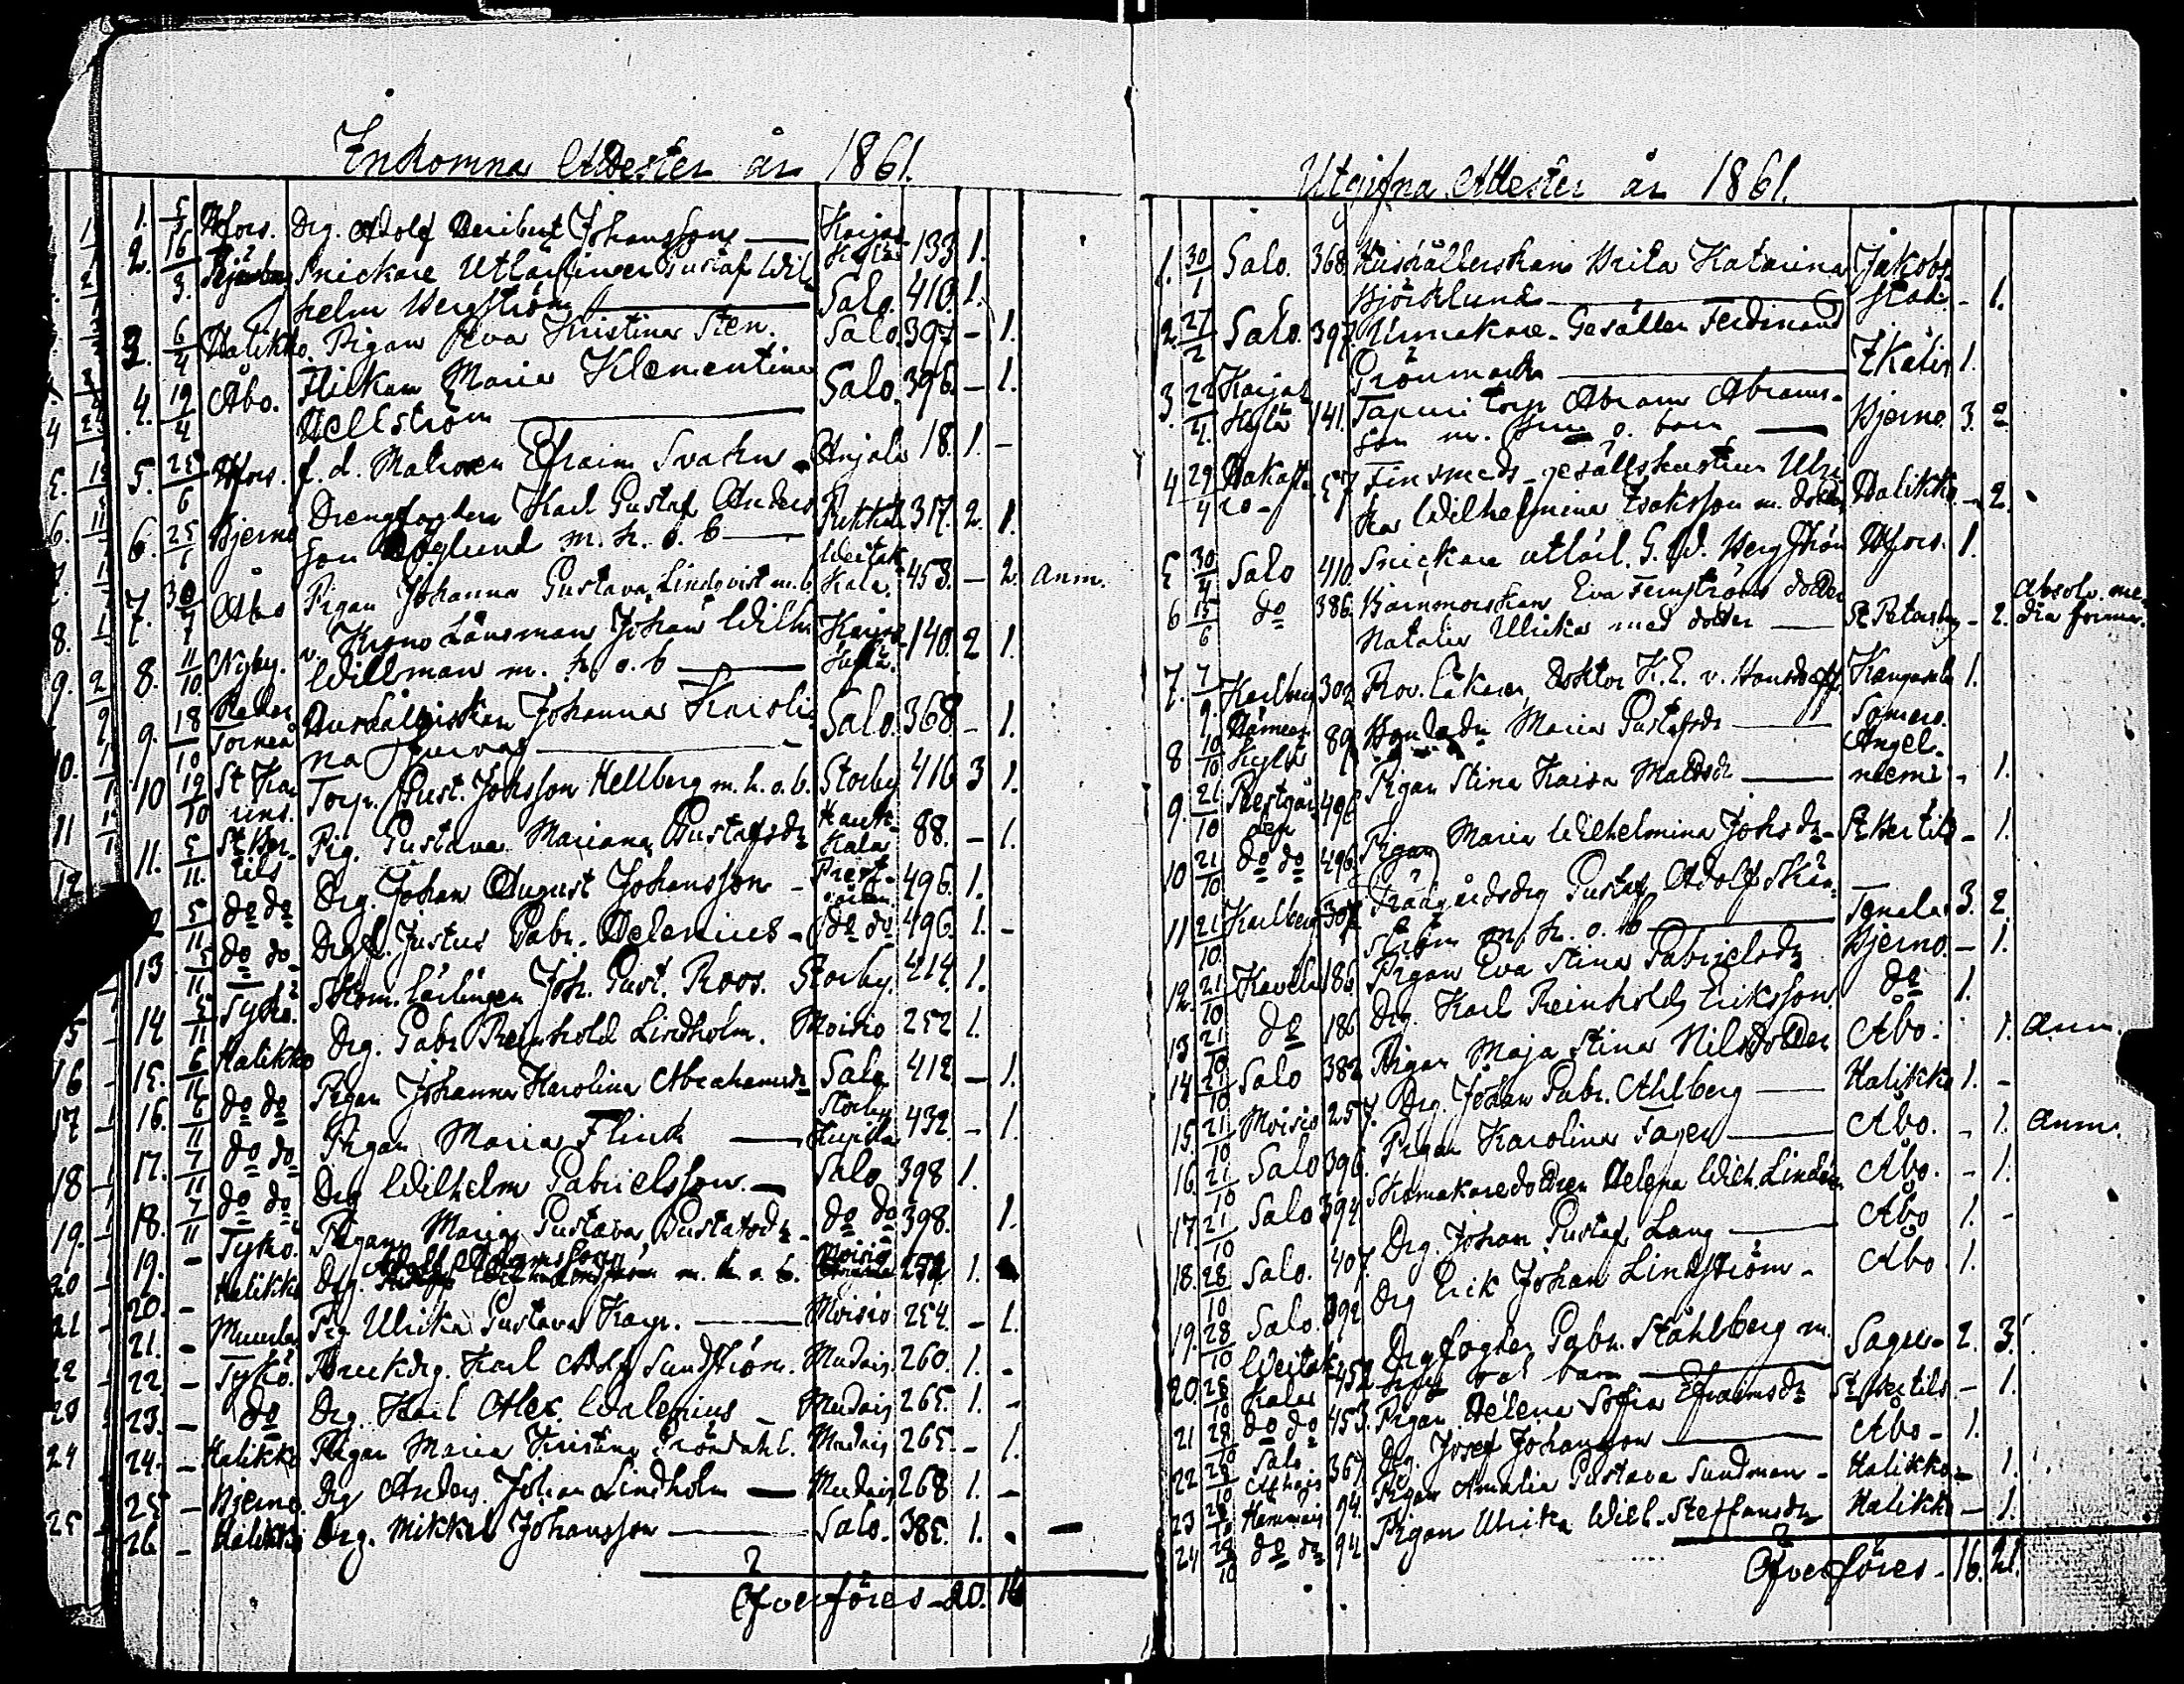 Inkomna Attester år 1861.
1. 5/3 Hfors. Drg. Adolf Johansson — 133 1.
2. 16/3. Snickare Utlärlingen Gustaf Wil-
helm Bergström — Salo. 410. 1.
3. 6/4 Halikko. Pigan Eva Kristina Sten. Salo. 397 - 1.
4. 19/4 Åbo. Flickan Maria Klementina
Hellström — Salo. 396. - 1.
5. 25/6 Hfors. f. d. Matrosen Efraim Svahn - Anjala 18. 1. -
6. 25/6 Bjerno Drengfogden Karl Gustaf Anders
son Höglund m. h. o. b — 317. 2. 1.
7. 30/7 Åbo Pigan Johanna Gustava Lindqvist m. b. Weitak-
kala. 453. - 2. Anm.
8. 11/10 Nyby. v. Krono Länsman Johan Wilh.
Willman m. h. o. b — 140. 2 1.
9. 18/10 Neder
Torneå Hushållerskan Johanna Karoli-
na — Salo. 368 - 1.
10 19/10 St Ka-
rins. Torp. Gust. Johsson Hellberg m. h. o. b. Storby 416 3 1.
11. 5/11. St Ber-
tils Pig. Gustava Mariana Gustafsdr 88. - 1.
5/11 do do Drg. Johan August Johansson - Prest-
gården. 496. 1.
13 5/11 do do Justus Gabr. Helenius - do do 496. 1. -
14 5/11 Tyko. Skom. lärlingen Joh. Gust. Roos. Storby. 414. 1.
15. 6/11 Halikko Drg. Gabr. Reinhold Lindholm. Moisio 252 1.
16. 6/11 do do Pigan Johanna Karolina Abrahamsdr Salo 412. - 1.
17. 7/11 do do Pigan Maria Flink — Storby 432. - 1.
18. 7/11 do do Drg Wilhelm Gabrielsson. — Salo 398 1.
19. - Tyko. Pigan Maria Gustava Gustafsdr - do do 398. 1.
20. - Halikko Drg. Adolf Adamsson m. h. o. b. Moisio 1.
21. - Muurla Pig Ulrika Gustava Karp. — Moisio 254. - 1.
22. - Tyko. Bruksdrg. Karl Adolf Sundström. 260. 1. -
23. - do Drg. Karl Alex. Walenius - 265. 1. -
24. - Halikko Pigan Maria Kristina Gröndahl. 265. - 1.
25 - Bjerno. Drg Anders Johan Lindholm — 268 1. -
26. - Halikko Drg. Mikkel Johansson — Salo. 385. 1.
Öfverföres - 20. 16
Utgifna Attester år 1861.
1. 30/1 Salo. 368. Hushållerskan Brita Katarina
Björklund — Jakobs-
stad. - 1.
2. 27/2 Salo. 397. Urmakare-Gesällen Ferdinand
Grönmark — 1.
3. 22/4. 141. Torp Abram Abrams-
son m. o. barn — Bjerno. 3. 2
4 29/4 57 Finsmeds-gesällshustrun Ulri-
ka Wilhelmina Isaksson m. dotter Halikko - 2.
5 30/4 Salo 410. Snickare utlärl. G. W. Bergström Hfors. 1.
6 15/6 do 386. Barnmorskan Eva Fernströms dotter
Natalia Ulrika med dotter — St Petersbg - 2. Absolv. me-
dia forma.
7. 7/9. Karlberg 302 Prov. Läkaren, Doktor K. E. v. Kangasala 1.
8 10/10 89 Maria Gustafsdr — Somero.
9. 21/10 Prestgår-
den 496 Pigan Stina Kaisa Mattsdr — Angel-
niemi - 1.
10 21/10 do do 496. Pigan Maria Wilhelmina Johsdr - St Bertils - 1.
11 21/10. Karlberg 307. Trädgårdsdrg Gustaf Adolf
m. h. o. b — Tenala 3. 2.
12. 21/10 Kavila 186. Pigan Eva Stina Gabrielsdr Bjerno. - 1.
13 21/10 do 186 Drg. Karl Reinhold Eriksson do 1.
14 21/10 Salo 382 Pigan Maja Stina Nilsdotter Åbo. 1. Anm.
15. 21/10 Moisio 257. Drg. Johan Gabr. Ahlberg — Halikko 1. -
16. 21/10 Salo 396. Pigan Karolina Fager — Åbo. - 1. Anm.
17. 21/10 Salo 394 Skomakaredottren Helena Wilh. Lindén Åbo. - 1.
18. 28/10 Salo. 407. Drg. Johan Gustaf Lang — Åbo 1. -
19. 28/10 Salo. 392 Drg Erik Johan Lindström - Åbo 1.
20. 28/10 Weitak-
kala 452 Drgfogden Gabr. Ståhlberg m.
barn — Sagu - 2. 3.
21 28/10 do do 453. Pigan Helena Sofia Efraimsdr St Bertils - 1.
22 28/10 Salo 367. Drg. Josef Johansson — Åbo - 1.
23 28/10 94. Pigan Amalia Gustava Sundman - Halikko - 1.
24 28/10 do do 94. Pigan Ulrika Wilh. Steffansdr Halikko - 1.
Öfverföres - 16. 21.